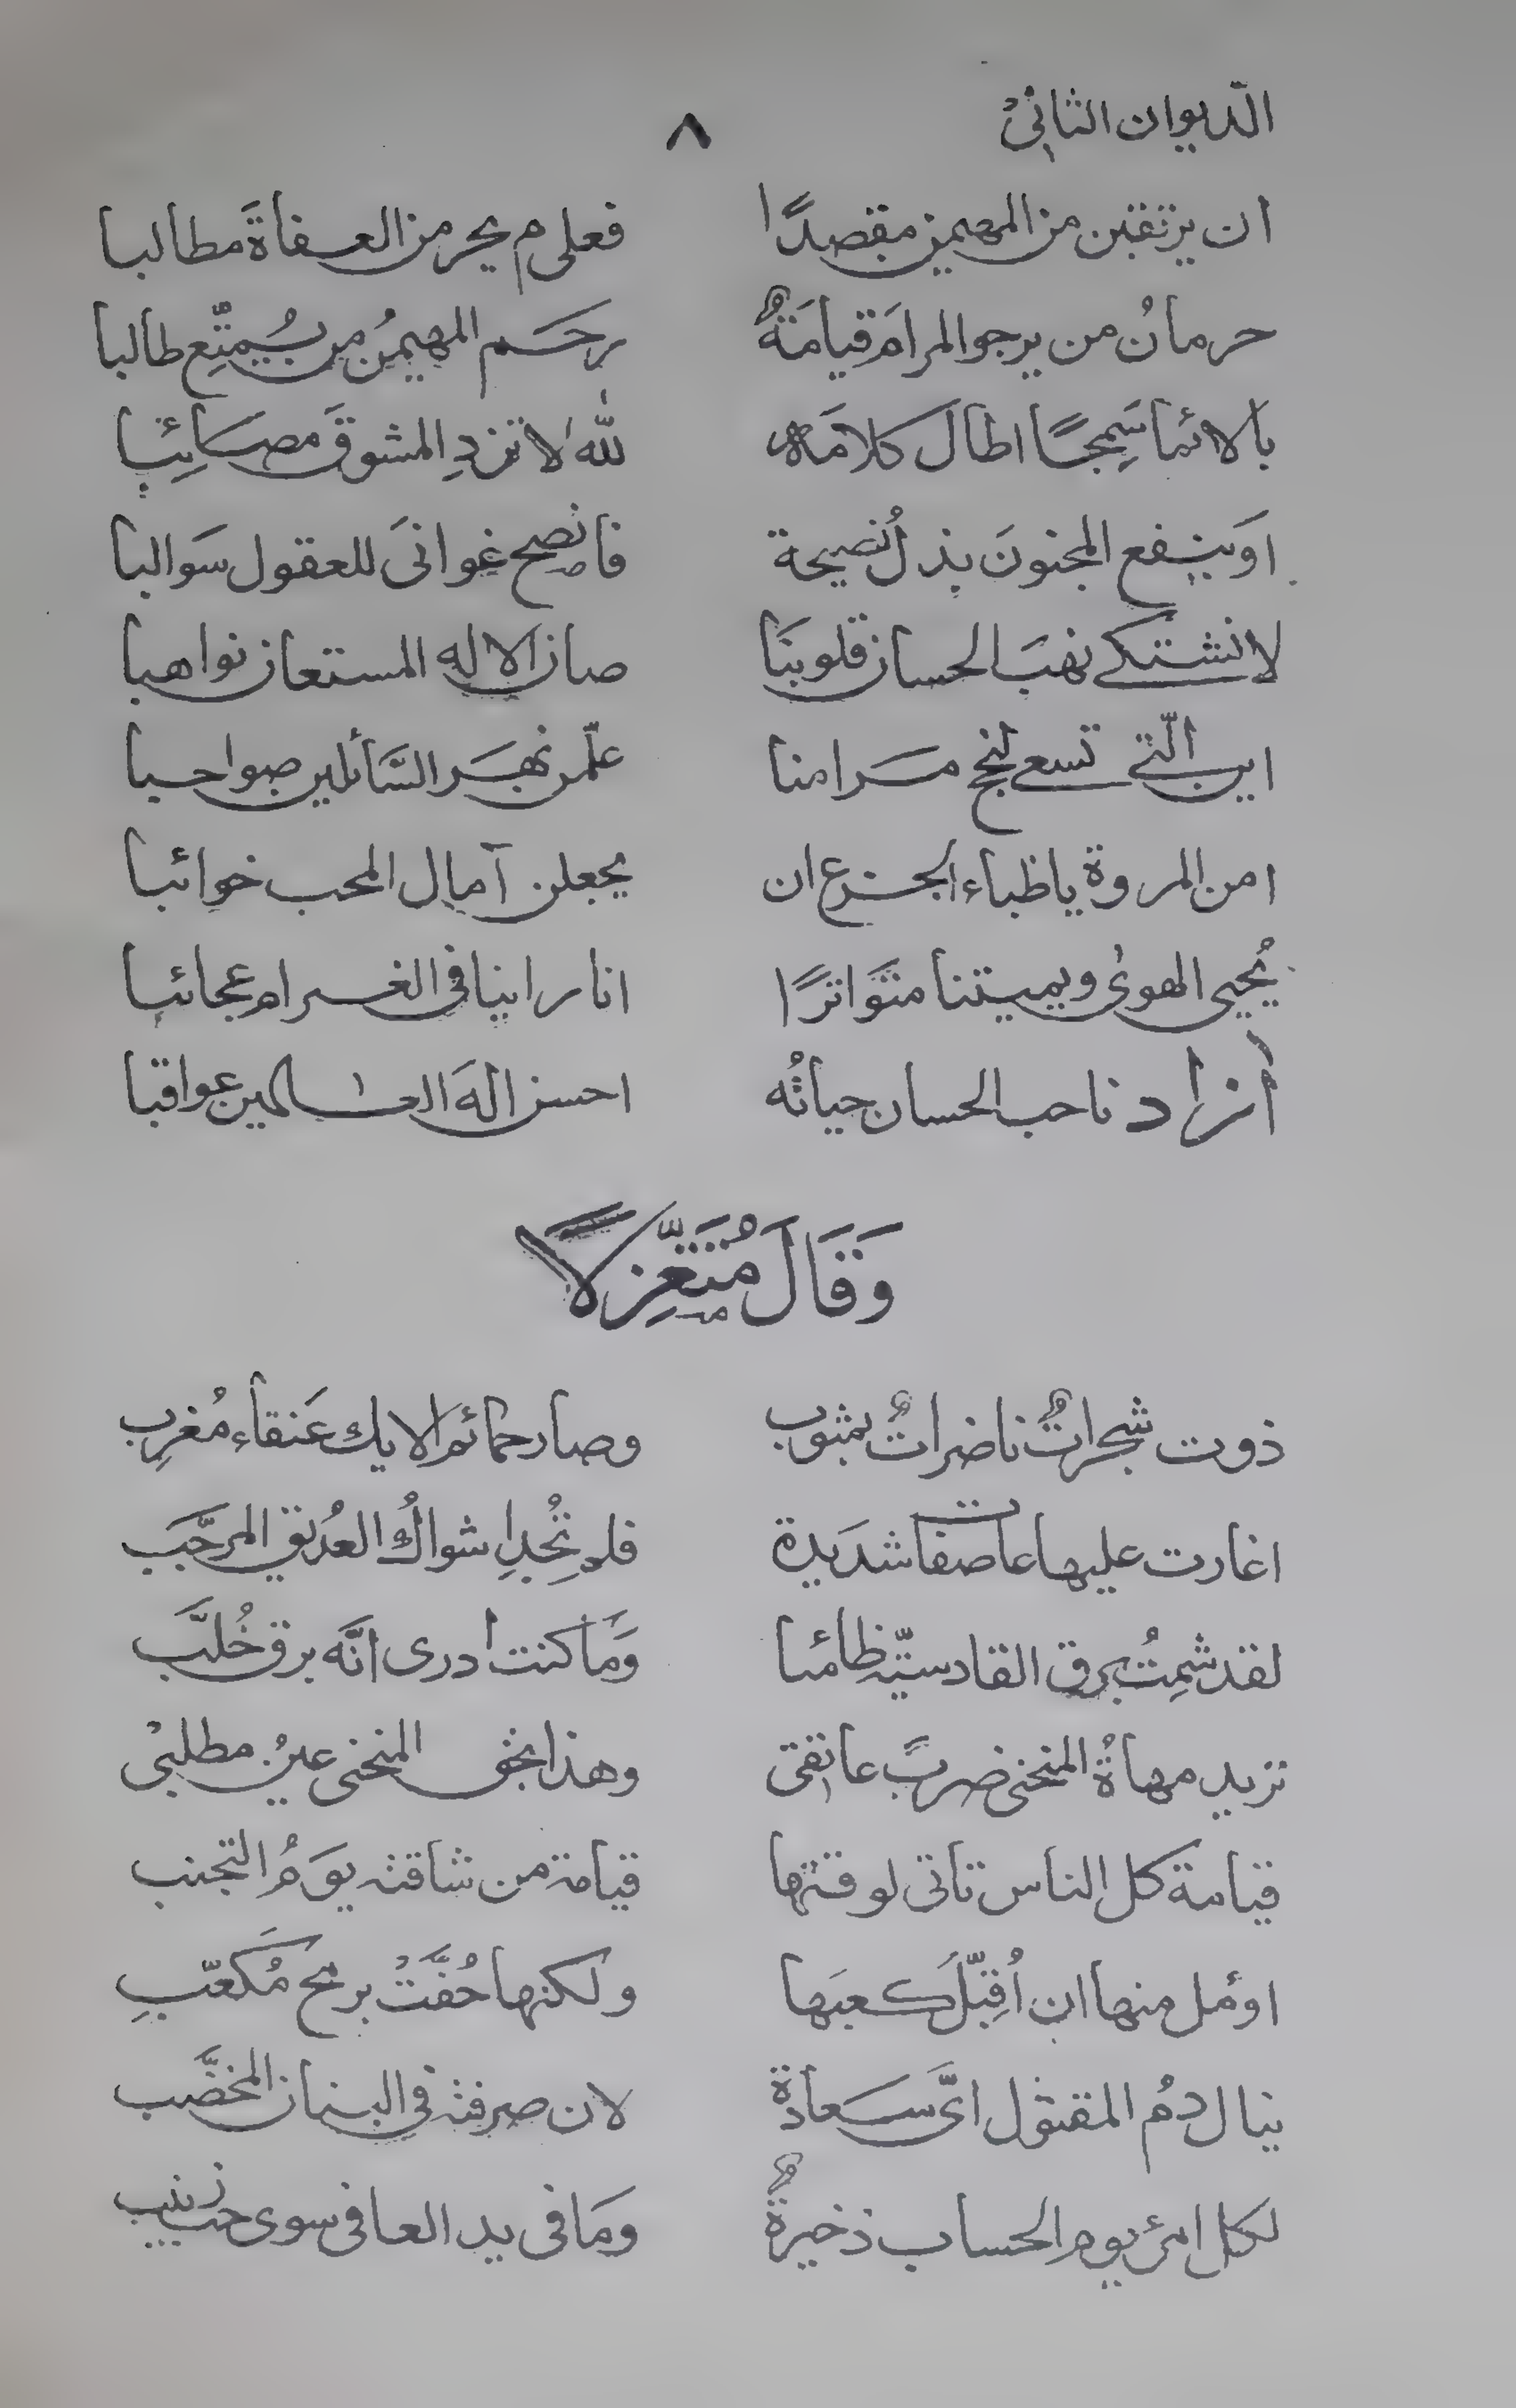 الدّيوان الثانيْ
٨
ان يرتقبن من المهيمن مقصدًا فعلى م يحرمن العفاةَ مطالبا
حرمانُ من يرجو المرامَ قيامَةٌ رحَم المهيمنُ من يُمتِّع طالبا
يا لائما سَمِجًا اطال كلامَه للّٰه لا تزدِ المشوقَ مصائِبا
اوَينفع المجنونَ بذلُ نصيحة فانصح غوانىَ للعقول سَوالبا
لا نشتكى نهبَ الحسان قلوبنَا صان الاله المستعان نواهبا
اين الّتى تسعى لنجح مَرامنا علّمن نهَر السَّائلين صواحبا
امن المروة يا ظباء الجزع ان يجعلن آمال المحب خوائبا
يُحيى الهوىٰ ويميتنا متَواترًا انا راينا فى الغرام عجائبا
آزاد ناحب الحسان حياتُه احسن الٰهَ العٰالمين عواقبا
وَقَالَ مُتَغَّزِلًا
ذوت شجراتٌ ناضراتٌ بمثوب وصار حمائم الايك عَنقاء مُغرِب
اغارت عليها عاصفات شدَيدة فلم تُجدِ اشواكُ العُذيق المرجَّب
لقد شِمتُ برق القادسيّة ظامئا وَمَا كنت ادرى انَّه برق خُلَّب
تريد مهاةُ المنحنى ضربً عاتقى وهذا بحق المنحنى عينُ مطلبيْ
قيامة كل الناس تاتى لوقتها قيامة من شاقته يوَمُ التجنب
اوئمل منها ان اُقبِّلَ كعبَها ولكنها حُفَّتْ برمح مُكعّبِ
ينال دمُ المقتول اىَّ سَعادة لان صرفته فى البنان المخضَّب
لكل امرئ يوم الحساب ذخيرةٌ ومَا فى يد العافى سوى حب زينب